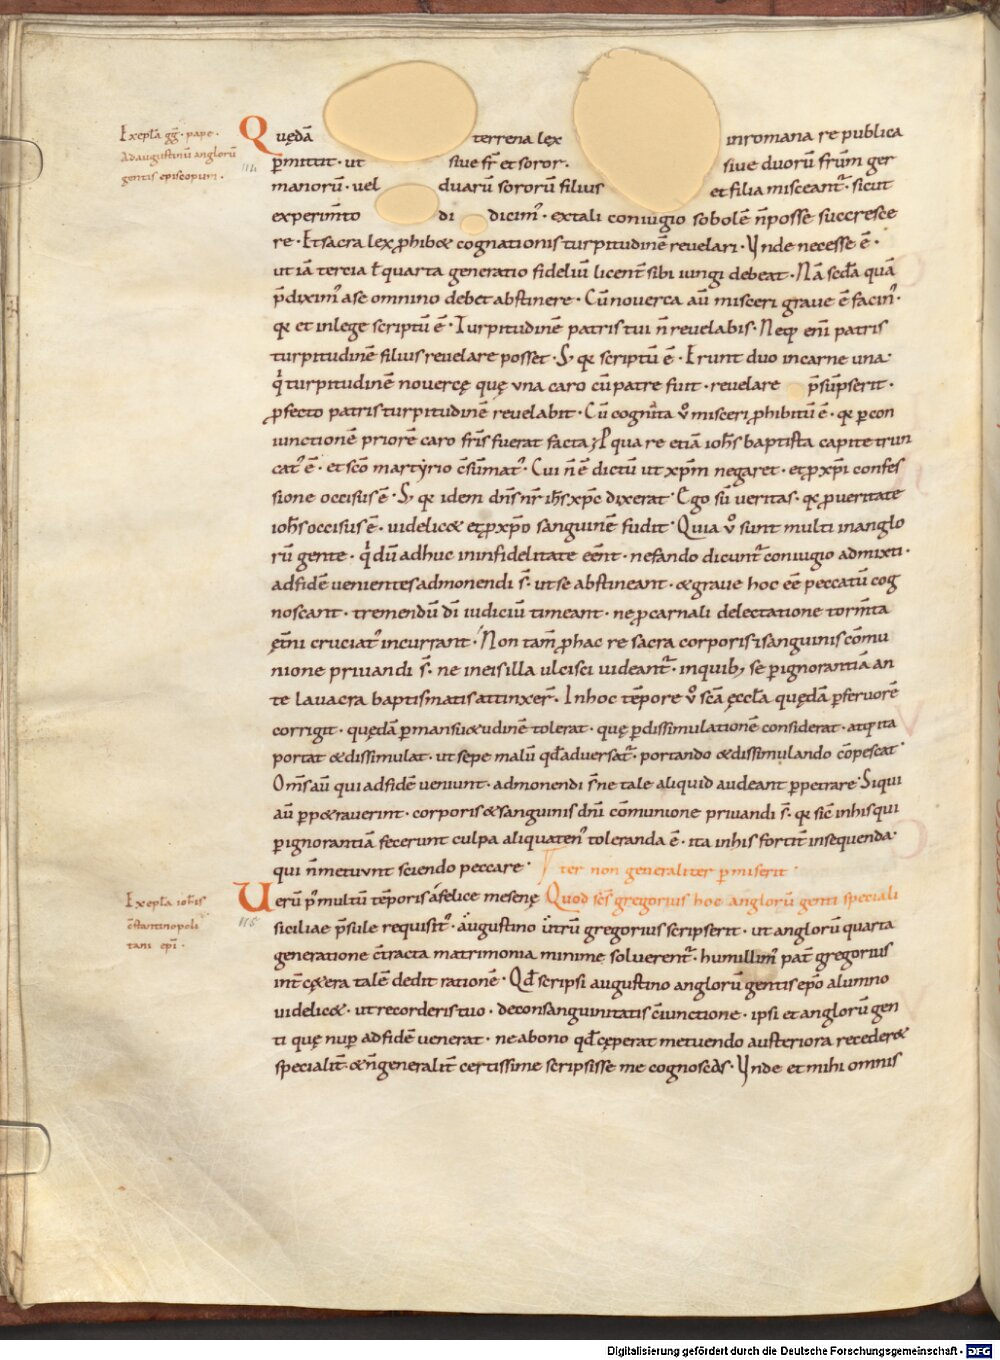 Exepła gg̅. pape.
Ad augustinū anglorū
gentis episcopum.
114
Quędā terrena lex inromana re publica
p̄mittit. ut siue fr̄ et soror. siue duorū fr̄um ger
manorū. uel duarū sororū filius et filia misceant᷑. sicut
experim̄to didicim᷒. ex tali coniugio sobolē n̄ posse succresce
re. Et sacra lex ꝓhibet cognationis turpitudinē reuelari. Vnde necesse ē.
ut iā tercia ł quarta generatio fideliū licent̄ sibi iungi debeat. Nā sc̄da quā
p̄dixim᷒ a se omnino debet abstinere. Cū nouerca aū misceri graue ē facin᷒.
qꝫ et in lege scriptū ē. Turpitudinē patris tui n̄ reuelabis. Neqꝫ eni̅ patris
turpitudinē filius reuelare posset. Sꝫ qꝫ scriptū ē. Erunt duo in carne una.
qi turpitudinē nouercę quę vna caro cū patre fuit. reuelare p̄sūpserit.
ꝓfecto patris turpitudinē reuelabit. Cū cogn̄ta v̊ misceri ꝓhibitū ē. qꝫ ꝑ con
iunctionē priorē caro fr̄is fuerat facta; P qua re etiā ioh̄s baptista capite trun
cat᷒ ē. et sc̄o martÿrio c̄sūmat᷒. Cui n̄ ē dictū ut xp̄m negaret. et ꝓ xp̄i confes
sione occisus ē. Sꝫ qꝫ idem dn̄s nr̄ ih̄s xp̄c dixerat. Ego sū ueritas. qꝫ ꝓ ueritate
ioh̄s occisus ē. uidelicet et ꝓ xp̄o sanguinē fudit. Quia v̊ sunt multi in anglo
rū gente. qi dū adhuc in infidelitate eēnt. nefando dicunt᷑ coniugio admixti.
ad fidē uenientes admonendi s̄. ut se abstineant. & graue hoc eē peccatū cog
noscant. tremendū dī iudiciū timeant. ne ꝓ carnali delectatione torm̄ta
ęt̄ni cruciat᷒ incurrant. Non tam̄ ꝓ hac re sacra corporis i sanguinis cōmu
nione priuandi s̄. ne in eis illa ulcisci uideant᷑. in quibꝫ se ꝑ ignorantiā an
te lauacra baptismatis attinxer̄. In hoc tēpore v̊ scā ęccła quędā ꝑ feruorē
corrigit. quędā ꝑ mansu&udinē tolerat. quę ꝑ dissimulationē considerat. atqꝫ ita
portat & dissimulat. ut sepe malū qđ aduersat᷑. portando & dissimulando cōpescat.
Om̄s aū qui ad fidē ueniunt. admonendi s̄ ne tale aliquid audeant ꝑpetrare. Siqui
aū ꝑp&rauerint. corporis & sanguinis dn̄i cōmunione priuandi s̄. qꝫ sic̄ in his qui
ꝑ ignorantiā fecerunt culpa aliquaten᷒ toleranda ē. ita in his fortit̄ insequenda.
qui n̄ metuvnt sciendo peccare. ter non generaliter ꝑmiserit.
Exepła ioh̄is
c̄stantinopoli
tani ep̄i.
115
Uerū p᷒ multū tēporis a felice mesenę Quod sc̄s gregorius hoc anglorū genti speciali
siciliae p̄sule requisit᷒. augustino utrū gregorius scripserit. ut anglorū quarta
generatione c̄tracta matrimonia minime soluerent᷑. humillim᷒ pat̄ gregorius
int̄ cętera talē dedit rationē. Qđ scripsi augustino anglorū gentis ep̄o alumno
uidelic&. ut recorderis tuo. de consanguinitatis c̄iunctione. ipsi et anglorū gen
ti quę nuꝑ ad fidē uenerat. ne a bono qđ cęperat metuendo austeriora recederet
specialit̄. & n̄ generalit̄ certissime scripsisse me cognoscas. Vnde et mihi omnis
Digitalisierung gefördert durch die Deutsche Forschungsgemeinschaft - DFG